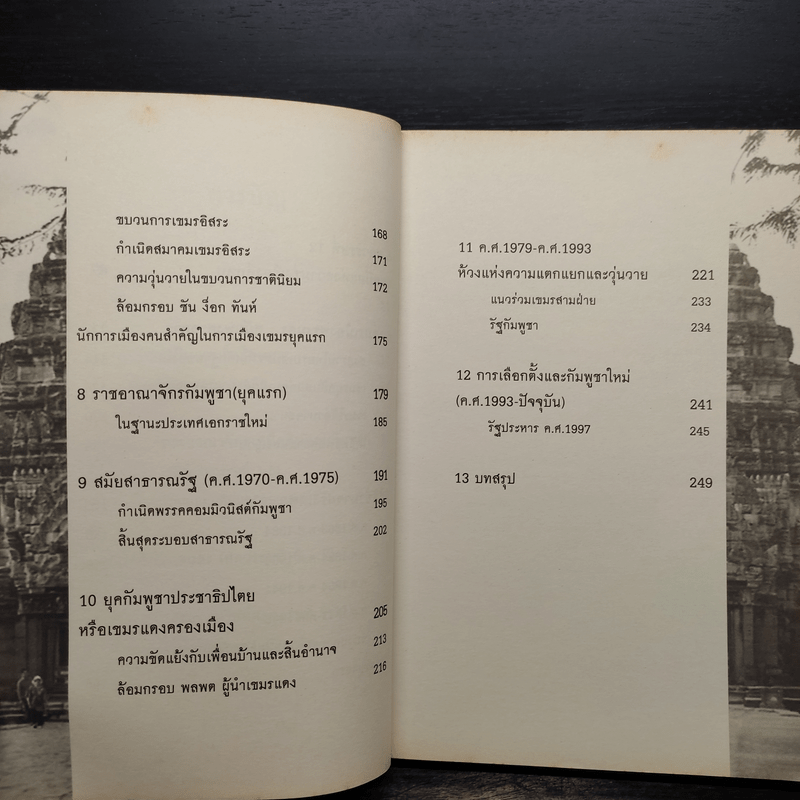 ขบวนการเขมรอิสระ 168
กำเนิดสมาคมเขมรอิสระ 171
ความวุ่นวายในขบวนการชาตินิยม 172
ล้อมกรอบ ซัน ง็อก ทันห์
นักการเมืองคนสำคัญในการเมืองเขมรยุคแรก 175
8 ราชอาณาจักรกัมพูชา(ยุคแรก) 179
ในฐานะประเทศเอกราชใหม่ 185
9 สมัยสาธารณรัฐ (ค.ศ.1970-ค.ศ.1975) 191
กำเนิดพรรคคอมมิวนิสต์กัมพูชา 195
สิ้นสุดระบอบสาธารณรัฐ 202
10 ยุคกัมพูชาประชาธิปไตย
หรือเขมรแดงครองเมือง 205
ความขัดแย้งกับเพื่อนบ้านและสิ้นอำนาจ 213
ล้อมกรอบ พลพต ผู้นำเขมรแดง 216
11 ค.ศ.1979-ค.ศ.1993
ห้วงแห่งความแตกแยกและวุ่นวาย 221
แนวร่วมเขมรสามฝ่าย 233
รัฐกัมพูชา 234
12 การเลือกตั้งและกัมพูชาใหม่
(ค.ศ.1993-ปัจจุบัน) 241
รัฐประหาร ค.ศ.1997 245
13 บทสรุป 249